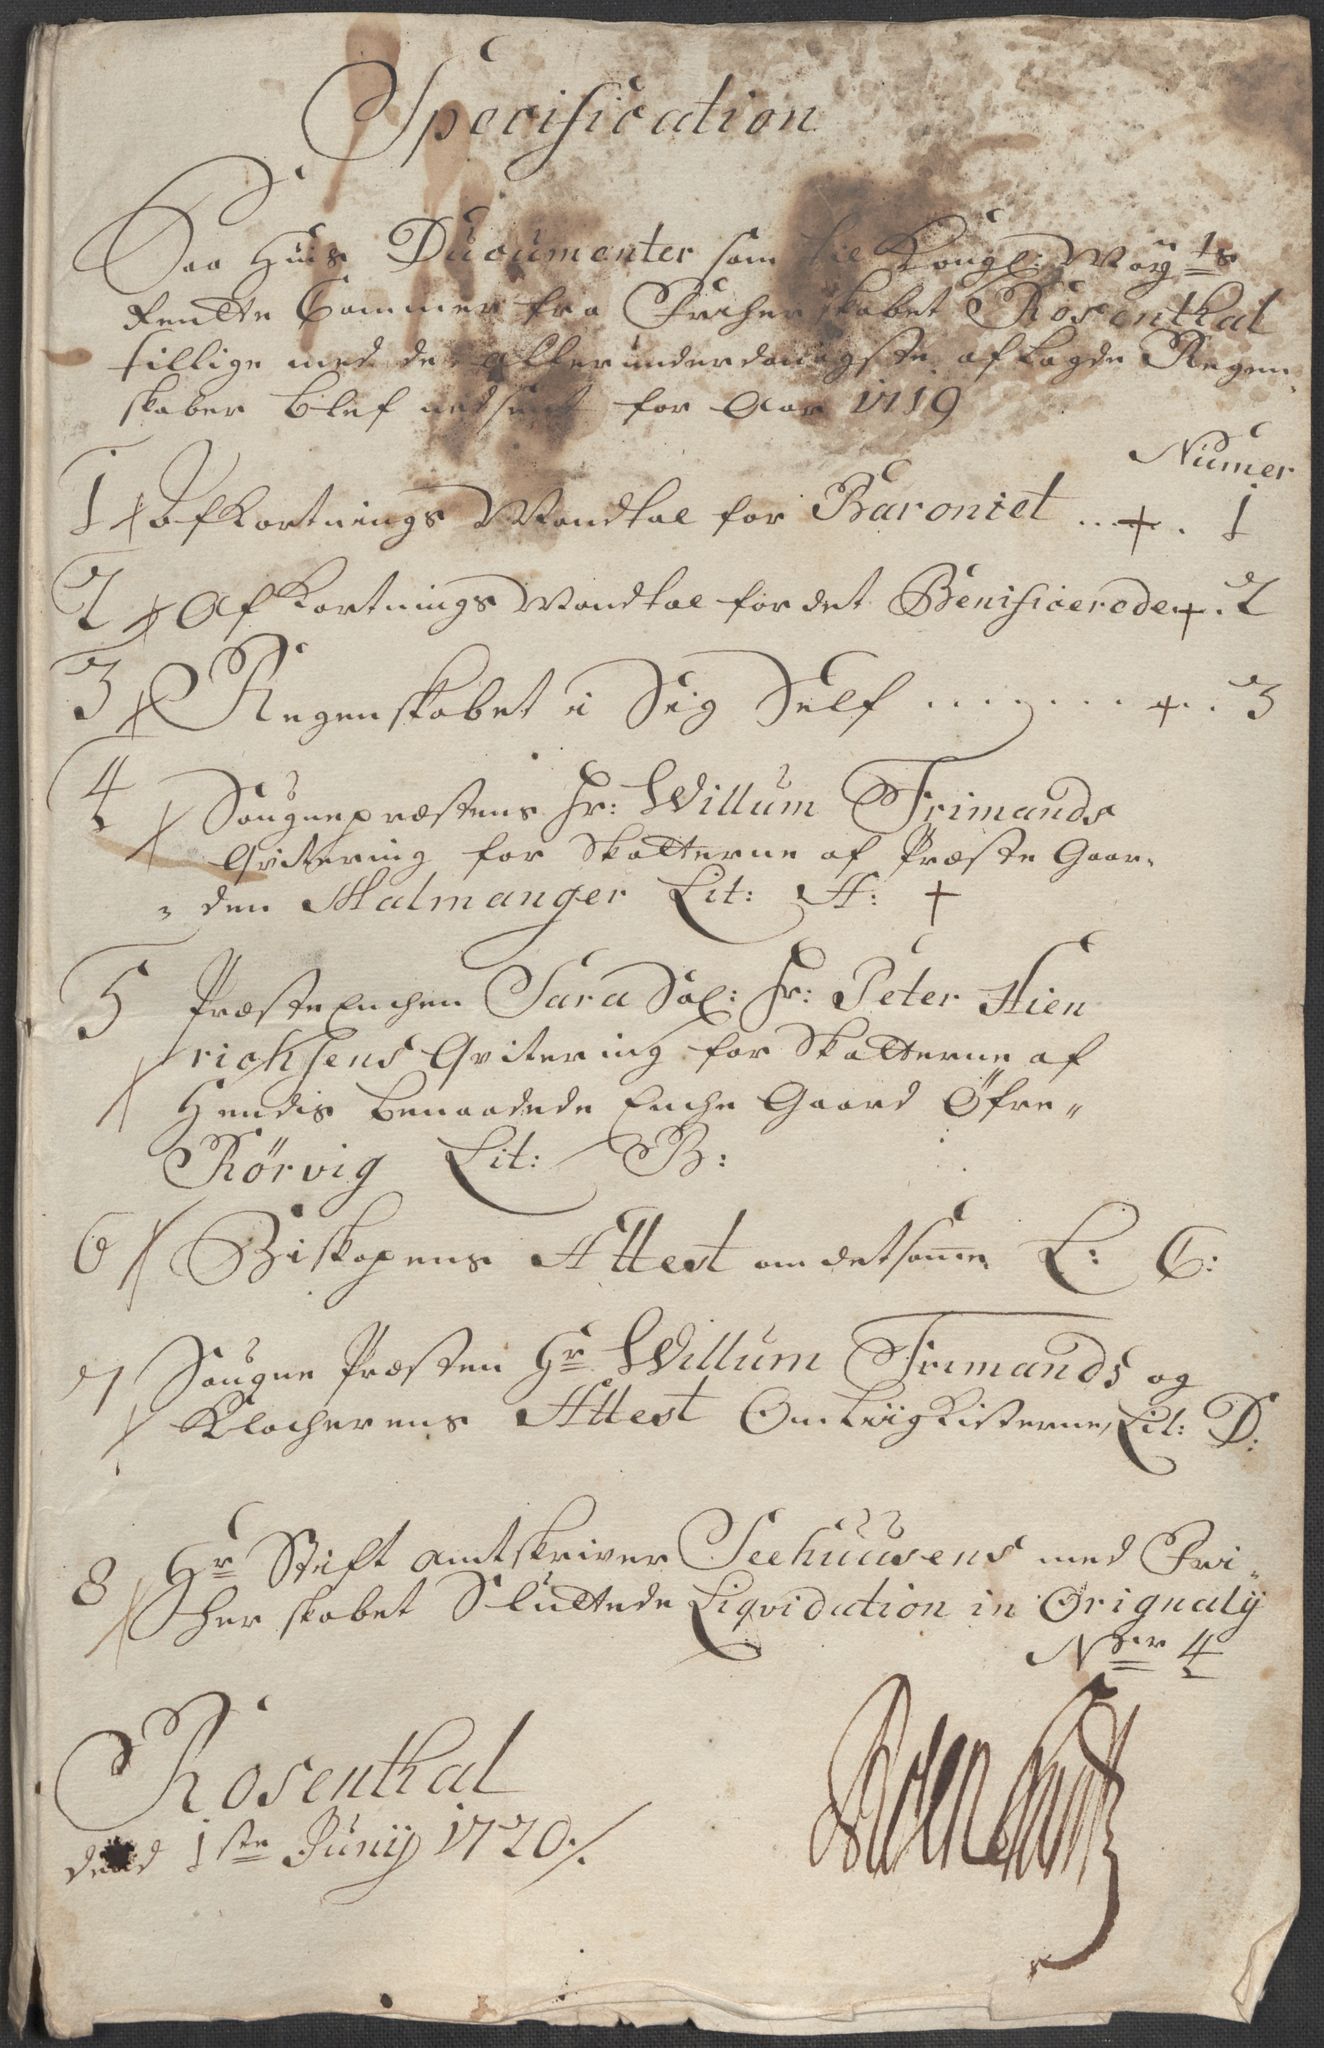 Specification
Paa Huis Ducumenter som til Kongl: May:ts
Rentte Cammer fra Friherskabet Rosenthal
tillige med de allerunderdanigste aflagde Regen-
skaber blef nedsent for Aar 1719
Numer
1 Afkortnings Mandtal for Baroniet ... + . 1
2 Af Kortnings Mandtal for det Benificerede + . 2
3 Regenskabet i Sig Self . . . . . . . . + . . 3
4 Sougnepræstens Hr: Willum Frimands
Qvitering for Skatterne af Præste Gaar-
den Malmanger Lit: A: +
5 Præste Enchen Sara Sal: Hr: Peter Hien
richsens Qvitering for Skatterne af
Hendis benaadede Enche Gaard Öfre
Rörvig Lit: B:
6 Biskopens Attest om det samme L: C:
7 Sougne Præsten Hr Willum Frimands og
Klocherens Attest Om Liigkisterne, Lit: D:
8 Hr Stift amtskriver Seehuusens med Fri-
herskabet Sluttede Liqvidation in Orignalij
Ner 4
Rosenthal
dend 1ste Junij 1720./.